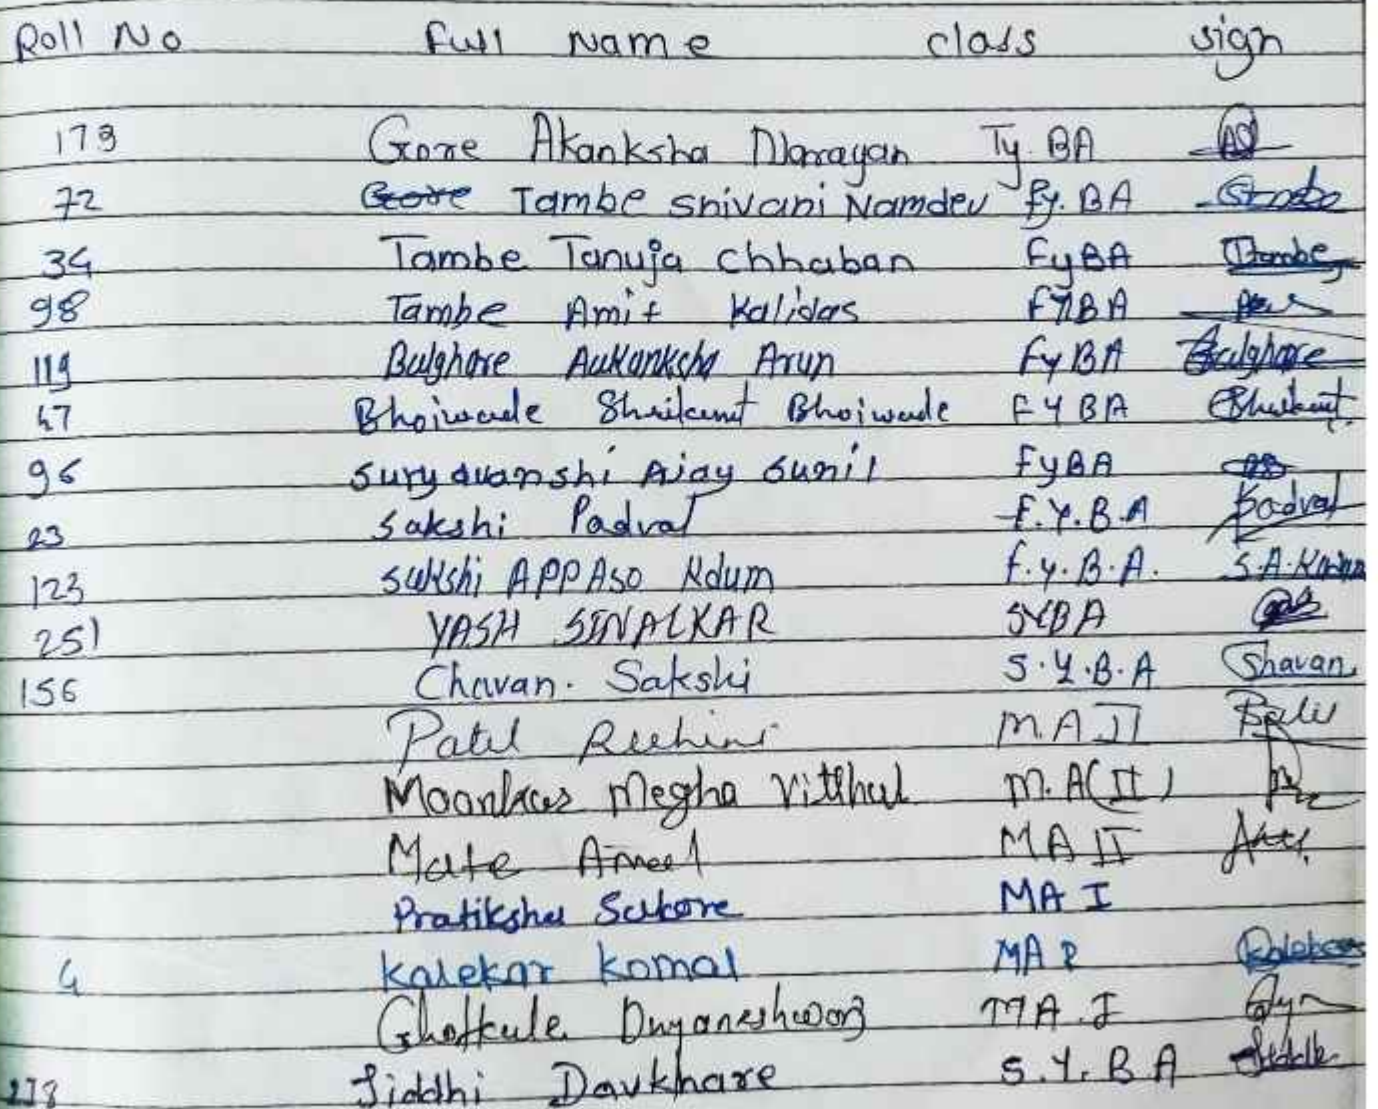 Roll No Full Name class sign
173 Gore Akanksha Narayan Ty. BA
72 Gore Tambe Shivani Namdev Fy. BA
34 Tambe Tanuja Chhaban FyBA Tambe
98 Tambe Amit Kalidas FYBA
119 Bulghare Aukanksha Arun Fy BA Bulghare
47 Bhoiwade Shrikant Bhoiwade F Y BA Shrikant
96 Suryavanshi Ajay Sunil FyBA
23 Sakshi Padval F.Y.B.A Padval
123 Sakshi APPASO Kdum F.y.B.A. S.A.Kadam
251 YASH SINALKAR SYBA
156 Chavan. Sakshi S.Y.B.A Chavan
Patil M.A II
Megha Vitthal M.A(II)
Mate Amol MA II
Pratiksha Sakore MA I
4 Kalekar Komal MA Kalekar
Dnyaneshwar MA.I
238 Siddhi Davkhare S.Y.BA Siddhi